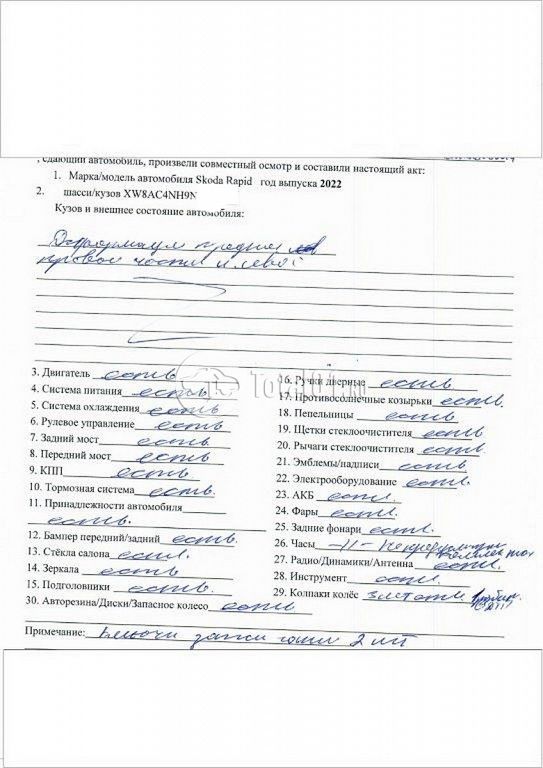 , сдающий автомобиль, произвели совместный осмотр и составили настоящий акт:
1. Марка/модель автомобиля Skoda Rapid год выпуска 2022
2. шасси/кузов XW8AC4NH9N
Кузов и внешнее состояние автомобиля:
правой части и левой
3. Двигатель есть
4. Система питания есть
5. Система охлаждения есть
6. Рулевое управление есть
7. Задний мост есть
8. Передний мост есть
9. КПП есть
10. Тормозная система есть.
11. Принадлежности автомобиля
есть.
12. Бампер передний/задний есть
13. Стёкла салона есть
14. Зеркала есть
15. Подголовники есть.
16. Ручки дверные есть
17. Противосолнечные козырьки есть.
18. Пепельницы есть
19. Щетки стеклоочистителя есть
20. Рычаги стеклоочистителя есть.
21. Эмблемы/надписи есть
22. Электрооборудование есть
23. АКБ есть
24. Фары есть
25. Задние фонари есть.
26. Часы -//-
27. Радио/Динамики/Антенна есть
28. Инструмент есть
29. Колпаки колёс
30. Авторезина/Диски/Запасное колесо есть
Примечание: Ключи зажигания 2 шт
Total01.ru